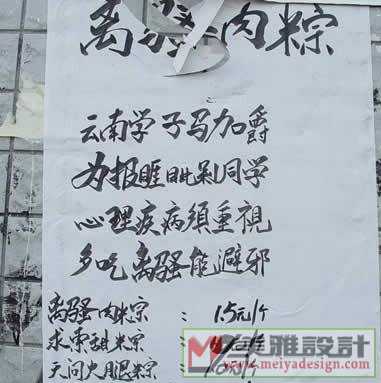 离骚肉粽
云南学子马加爵
为报睚眦剁同学
心理疾病須重視
多吃离骚能避邪
离骚肉粽 : 1.5元/个
求索甜粽 :
天问火腿粽 :
雅設計
www.meiyadesign.com